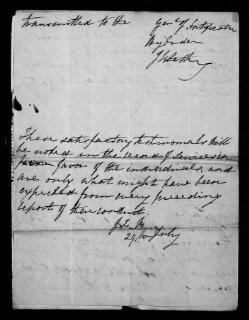 transmitted to the
Genl of Fortification
By Order

These satisfactory testimonials will
be noted in the record of Services in
favor of the individuals, and
are only what might have been
expected from every preceding
report of their conduct.
29 July